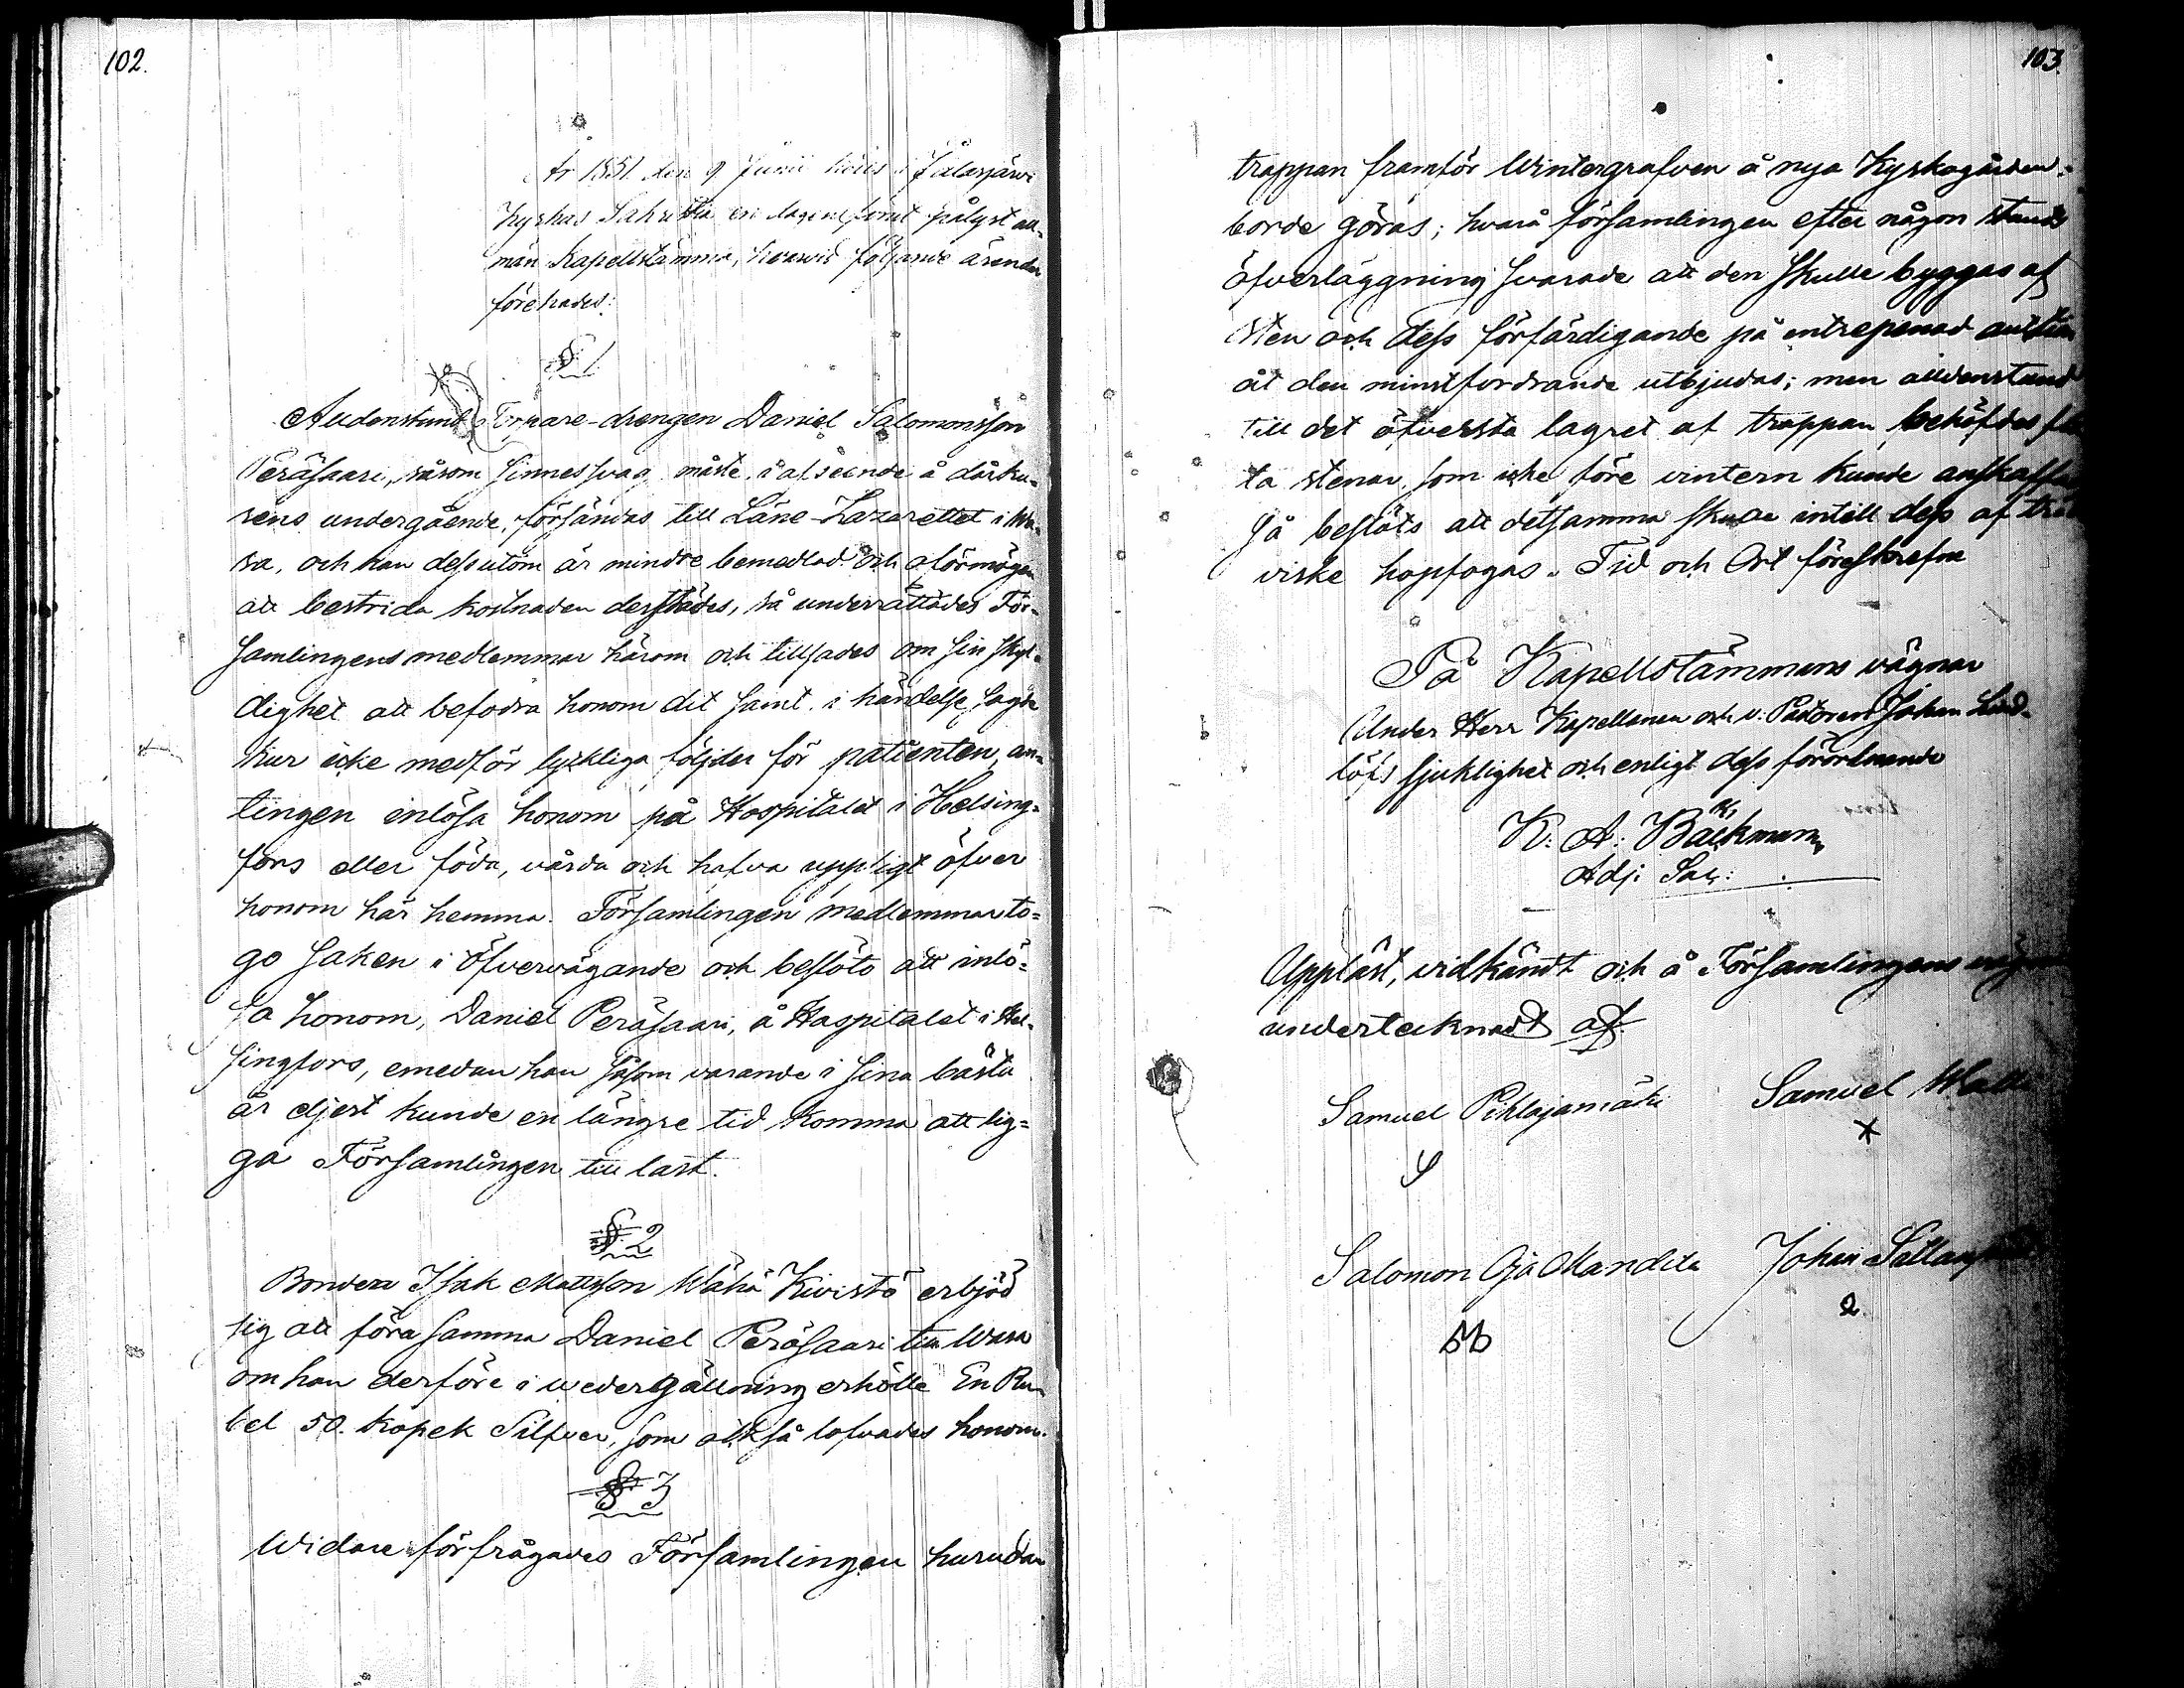 102.
År 1851 den 9 Junii hölls i Jalasjärvi
Kyrkas Sakristia en lagenligmt pålyst all-
män Kapellstämma, hvarvid följande ärender
förehades:
§ 1
Alldenstund Torpare-drengen Daniel Salomonsson
Peräsaari, såsom sinnessvag måste, i afseende å dårku-
rens undergående, försändas till Läne-Lazarettet i Wa-
sa, och han dessutom är mindre bemedlad och oförmögen
att bestrida kostnaden derstädes, så underrättades För-
samlingens medlemmar härom och tillsades om sin skyl-
dighet att befodra honom dit samt, i händelse sagde
kur icke medför lyckliga följder för patienten, an-
tingen inlösa honom på Hospitalet i Helsing-
fors eller föda, vårda och hafva uppsigt öfver
honom här hemma. Församlingen medlemmar to-
go saken i öfvervägande och beslöto att inlö-
sa honom, Daniel Peräsaari, å Hospitalet i Hel-
singfors, emedan han såsom varande i sina bästa
år eljest kunde en längre tid komma att lig-
ga Församlingen till last.
§ 2
Bonden Isak Mattsson Wähä Kivistö erbjöd
sig att föra samma Daniel Peräsaari till Wasa
om han derföre i wedergällning erhölle En Ru-
bel 50. kopek Silfver, som altså lofvades honom.
§ 3
Widare förfrågades Församlingen hurudan
103.
trappan framför Wintergrafven å nya Kyrkogården
borde göras; hvarå församlingen efter någon stunds
öfverläggning svarade att den skulle byggas af
sten och dess förfärdigande på entrepenad
åt den minstfordrande utbjudas; men alldenstund
till det öfversta lagret af trappan behöfdes
ta stenar, som icke före vintern kunde anskaffas
så beslöts att detsamma skulle intill dess af
virke hopfogas. Tid och Ort föreskrefne
På Kapellstämmans vägnar
Under Herr Kapellanen och v: Pastoren Johan Lind-
löfs sjuklighet och enligt dess förordnande
K: A: Bäckman
Adj: Sac:
Uppläst, vidkändt och å Församlingens
undertecknadt af
Samuel Pihlajamäki Samuel
Salomon Oja Mandila Johan